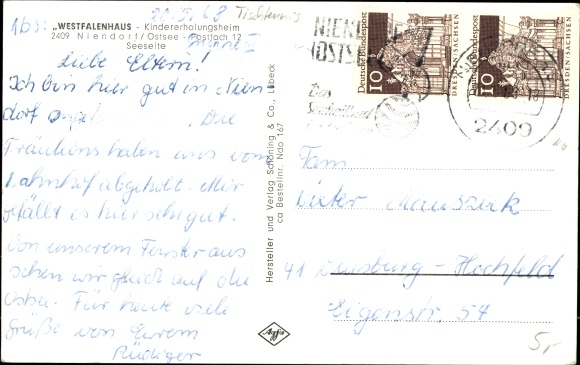 Abs:
20.5.68
Tischtennis
„WESTFALENHAUS - Kindererholungsheim
2409 Niendorf/Ostsee - Postfach 12
Seeseite
Liebe Eltern!
Ich bin hier gut in Nien
dorf Die
Fräuleins haben uns vom
Bahnhof abgeholt. Mir
gefällt es hier sehr gut.
Von unserem Fenster aus
sehen wir gleich auf die
Ostsee. Für heute viele
Grüße von Eurem
Rüdiger
Hersteller und Verlag Schöning & Co., Lübeck
ca Bestellnr. Ndo 167
Agfa
NIEN
OSTS
Deutsche Bundespost
10
DRESDEN/SACHSEN
Deutsche Bundespost
10
DRESDEN/SACHSEN
2409
Fam.
Dieter
41 Duisburg-Hochfeld
Eigenstr. 54
5,-